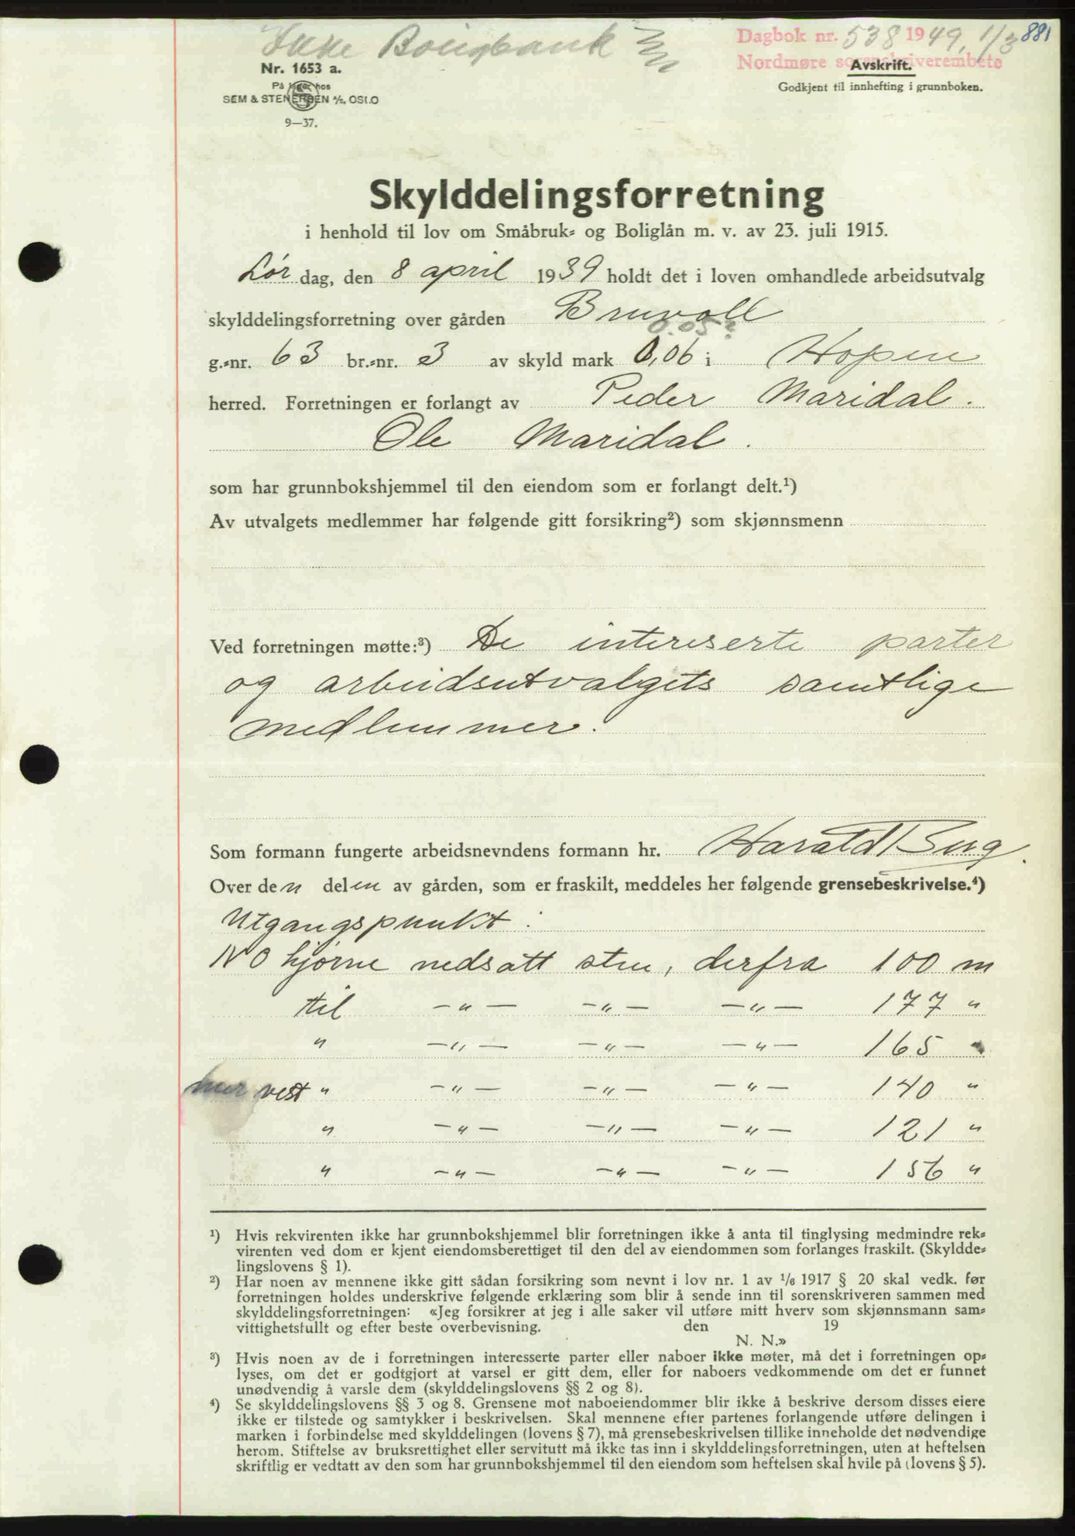 Ikke Boligbank
Dagbok nr. 538 1949, 1/3 881
Nordmøre sorenskriverembete
Avskrift.
Godkjent til innhefting i grunnboken.
Nr. 1653 a.
På lager hos
SEM & STENERSEN A/S, OSLO
9—37.
Skylddelingsforretning
i henhold til lov om Småbruk- og Boliglån m. v. av 23. juli 1915.
Lør dag, den 8 april 1939 holdt det i loven omhandlede arbeidsutvalg
skylddelingsforretning over gården Bruvoll
0.05?
g.-nr. 63 br.-nr. 3 av skyld mark 0,06 i Hopen
herred. Forretningen er forlangt av Peder Maridal.
Ole Maridal.
som har grunnbokshjemmel til den eiendom som er forlangt delt.¹)
Av utvalgets medlemmer har følgende gitt forsikring²) som skjønnsmenn
Ved forretningen møtte:³) De intereserte parter
og arbeidsutvalgets samtlige
medlemmer.
Som formann fungerte arbeidsnevndens formann hr. Harald Berg.
Over den delen av gården, som er fraskilt, meddeles her følgende grensebeskrivelse.⁴)
Utgangspunkt:
NO hjørne nedsatt sten, derfra 100 m
til —"— —"— —"— 177 "
" —"— —"— —"— 165 "
mur vest " —"— —"— —"— 140 "
" —"— —"— —"— 121 "
" —"— —"— —"— 156 "
¹) Hvis rekvirenten ikke har grunnbokshjemmel blir forretningen ikke å anta til tinglysing medmindre rek-
virenten ved dom er kjent eiendomsberettiget til den del av eiendommen som forlanges fraskilt. (Skyldde-
lingslovens § 1).
²) Har noen av mennene ikke gitt sådan forsikring som nevnt i lov nr. 1 av 1/6 1917 § 20 skal vedk. før
forretningen holdes underskrive følgende erklæring som blir å sende inn til sorenskriveren sammen med
skylddelingsforretningen: «Jeg forsikrer at jeg i alle saker vil utføre mitt hverv som skjønnsmann sam-
vittighetsfullt og efter beste overbevisning. den 19
N. N.»
³) Hvis noen av de i forretningen interesserte parter eller naboer ikke møter, må det i forretningen op-
lyses, om det er godtgjort at varsel er gitt dem, eller for naboers vedkommende om det er funnet
unødvendig å varsle dem (skylddelingslovens §§ 2 og 8).
⁴) Se skylddelingslovens §§ 3 og 8. Grensene mot naboeiendommer blir ikke å beskrive dersom disses eiere
ikke er tilstede og samtykker i beskrivelsen. Skal mennene efter partenes forlangende utføre delingen i
marken i forbindelse med skylddelingen (lovens § 7), må grensebeskrivelsen tillike inneholde det nødvendige
herom. Stiftelse av bruksrettighet eller servitutt må ikke tas inn i skylddelingsforretningen, uten at heftelsen
skriftlig er vedtatt av den som har grunnbokshjemmel til den eiendom som heftelsen skal hvile på (lovens § 5).